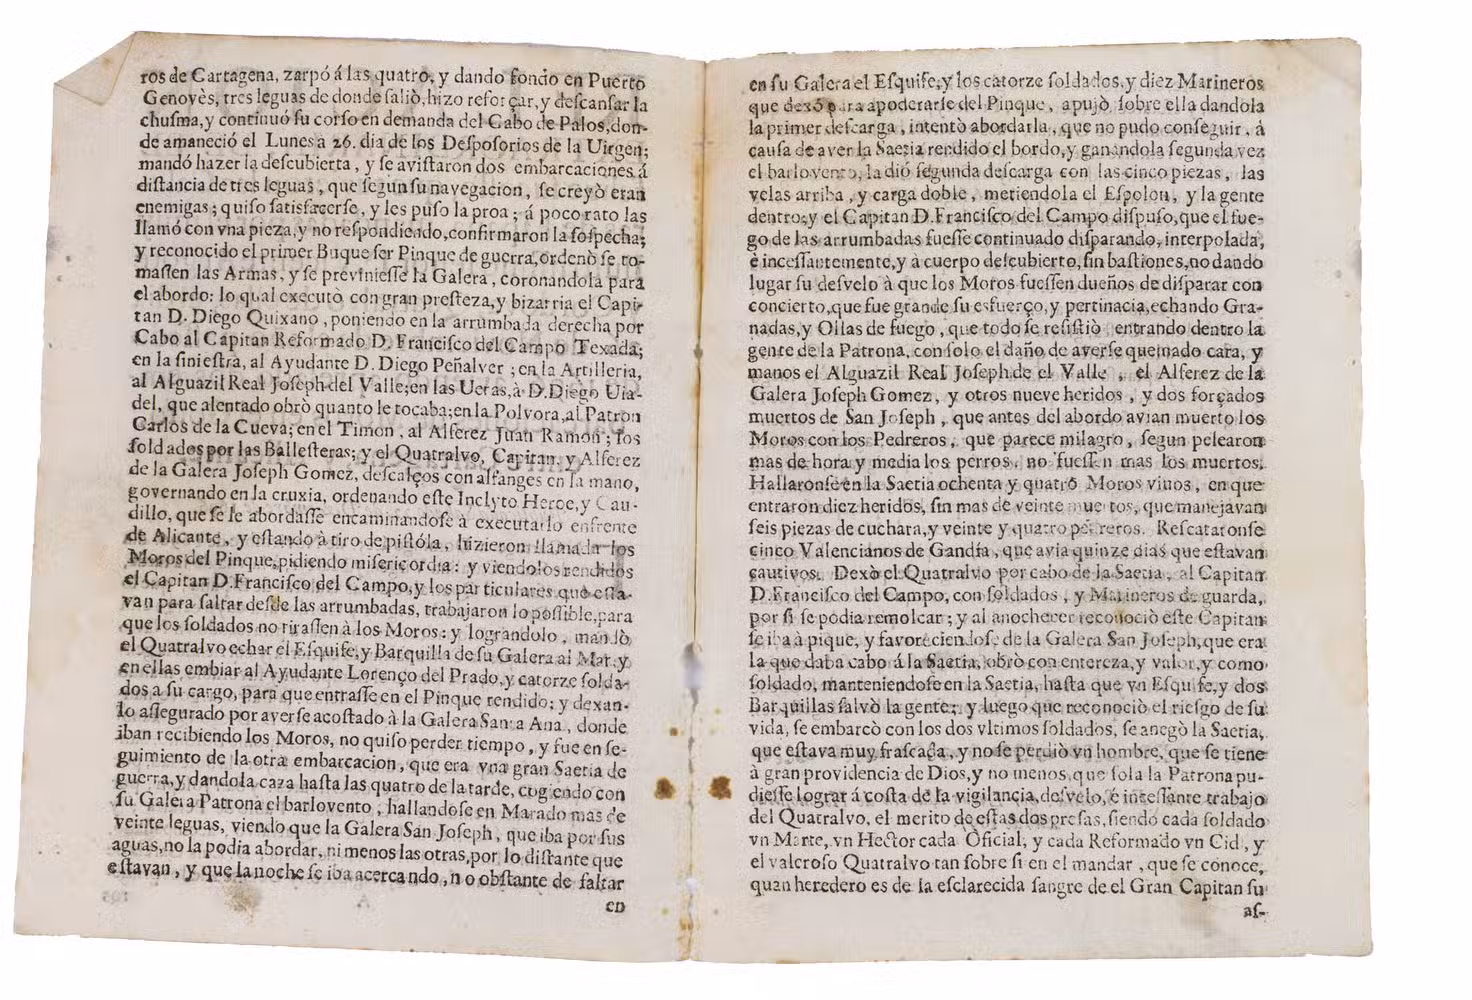 ros de Cartagena, zarpó á las quatro, y dando fondo en Puerto
Genovès, tres leguas de donde saliò, hizo reforçar, y descansar la
chusma, y continuó su corso en demanda del Cabo de Palos, don-
de amaneció el Lunes a 26. dia de los Desposorios de la Uirgen;
mandó hazer la descubierta, y se avistaron dos embarcaciones á
distancia de tres leguas, que segun su navegacion, se creyò eran
enemigas; quiso satisfacerse, y les puso la proa; á poco rato las
llamó con vna pieza, y no respondiendo, confirmaron la sospecha;
y reconocido el primer Buque ser Pinque de guerra, ordenò se to-
massen las Armas, y se previniesse la Galera, coronandola para
el abordo: lo qual executò con gran presteza, y bizarria el Capi-
tan D. Diego Quixano, poniendo en la arrumbada derecha por
Cabo al Capitan Reformado D. Francisco del Campo Texada;
en la siniestra, al Ayudante D. Diego Peñalver; en la Artilleria,
al Alguazil Real Joseph del Valle; en las Ueras, à D. Diego Uia-
del, que alentado obrò quanto le tocaba; en la Polvora, al Patron
Carlos de la Cueva; en el Timon, al Alferez Juan Ramon; los
soldados por las Ballesteras; y el Quatralvo, Capitan, y Alferez
de la Galera Joseph Gomez, descalços con alfanges en la mano,
governando en la cruxia, ordenando este Inclyto Heroe, y Cau-
dillo, que se le abordasse encaminandose à executarlo enfrente
de Alicante, y estando à tiro de pistóla, hizieron llamada los
Moros del Pinque, pidiendo misericordia: y viendolos rendidos
el Capitan D. Francisco del Campo, y los particulares que esta-
van para saltar desde las arrumbadas, trabajaron lo possible, para
que los soldados no tirassen à los Moros: y lográndolo, mandò
el Quatralvo echar el Esquife, y Barquilla de su Galera al Mar, y
en ellas embiar al Ayudante Lorenço del Prado, y catorze solda-
dos a su cargo, para que entrasse en el Pinque rendido; y dexan-
lo assegurado por averse acostado à la Galera Santa Ana, donde
iban recibiendo los Moros, no quiso perder tiempo, y fue en se-
guimiento de la otra embarcacion, que era vna gran Saetia de
guerra, y dandola caza hasta las quatro de la tarde, cogiendo con
su Galera Patrona el barlovento, hallandose en Marado mas de
veinte leguas, viendo que la Galera San Joseph, que iba por sus
aguas, no la podia abordar, ni menos las otras, por lo distante que
estavan, y que la noche se iba acercando, no obstante de faltar
en
en su Galera el Esquife, y los catorze soldados, y diez Marineros
que dexó para apoderarse del Pinque, apujò sobre ella dandola
la primer descarga, intentò abordarla, que no pudo conseguir, á
causa de aver la Saetia rendido el bordo, y ganandola segunda vez
el barlovento, la dió segunda descarga con las cinco piezas, las
velas arriba, y carga doble, metiendola el Espolon, y la gente
dentro; y el Capitan D. Francisco del Campo dispuso, que el fue-
go de las arrumbadas fuesse continuado disparando, interpolada,
è incessantemente, y à cuerpo descubierto, sin bastiones, no dando
lugar su desvelo à que los Moros fuessen dueños de disparar con
concierto, que fue grande su esfuerço, y pertinacia, echando Gra-
nadas, y Ollas de fuego, que todo se resistiò, entrando dentro la
gente de la Patrona, con solo el daño de averse quemado cara, y
manos el Alguazil Real Joseph de el Valle, el Alferez de la
Galera Joseph Gomez, y otros nueve heridos, y dos forçados
muertos de San Joseph, que antes del abordo avian muerto los
Moros con los Pedreros, que parece milagro, segun pelearon
mas de hora y media los perros, no fuessen mas los muertos.
Hallaronse en la Saetia ochenta y quatro Moros viuos, en que
entraron diez heridos, sin mas de veinte muertos, que manejavan
seis piezas de cuchara, y veinte y quatro pedreros. Rescataronse
cinco Valencianos de Gandía, que avia quinze dias que estavan
cautivos. Dexò el Quatralvo por cabo de la Saetia, al Capitan
D. Francisco del Campo, con soldados, y Marineros de guarda,
por si se podia remolcar; y al anochecer reconociò este Capitan
se iba à pique, y favoreciendose de la Galera San Joseph, que era
la que daba cabo á la Saetia, obrò con entereza, y valor, y como
soldado, manteniendose en la Saetia, hasta que vn Esquife, y dos
Barquillas salvò la gente; y luego que reconoció el riesgo de su
vida, se embarcò con los dos vltimos soldados, se anegò la Saetia,
que estava muy frascada, y no se perdiò vn hombre, que se tiene
à gran providencia de Dios, y no menos, que sola la Patrona pu-
diesse lograr á costa de la vigilancia, desvelo, è incessante trabajo
del Quatralvo, el merito de estas dos presas, siendo cada soldado
vn Marte, vn Hector cada Oficial, y cada Reformado vn Cid, y
el valeroso Quatralvo tan sobre si en el mandar, que se conoce,
quan heredero es de la esclarecida sangre de el Gran Capitan su
as-